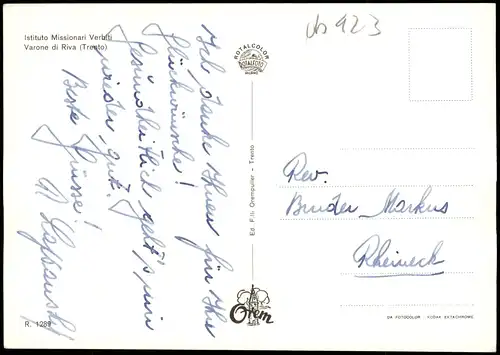 Istituto Missionari Verbiti
Varone di Riva (Trento)
Ich danke Ihnen für Ihre
Glückwünsche!
Gesundheitlich geht's mir
wieder gut.
Beste Grüsse!
ROTALCOLOR
ROTALFOTO
MILANO
Ed. F.lli Orempuller - Trento
Orem
923
Rev.
Bruder Markus
Rheineck
R. 1289
DA FOTOCOLOR KODAK EKTACHROME